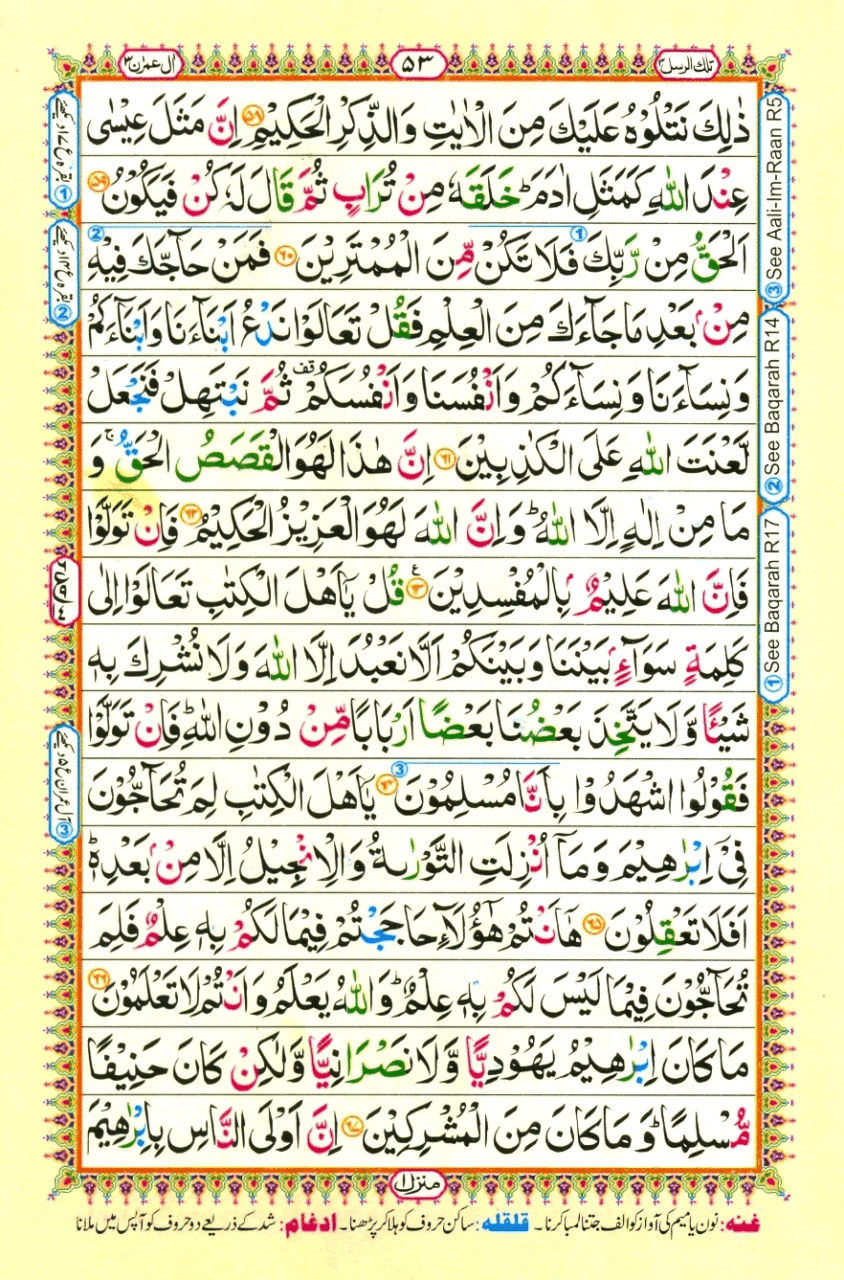 تلك الرسل ٣
٥٣
اٰل عمرٰن ٣
ذٰلِكَ نَتْلُوْهُ عَلَيْكَ مِنَ الْاٰيٰتِ وَالذِّكْرِ الْحَكِيْمِ ۝٥٨ اِنَّ مَثَلَ عِيْسٰى
عِنْدَ اللّٰهِ كَمَثَلِ اٰدَمَ ؕ خَلَقَهٗ مِنْ تُرَابٍ ثُمَّ قَالَ لَهٗ كُنْ فَيَكُوْنُ ۝٥٩
اَلْحَقُّ مِنْ رَّبِّكَ فَلَا تَكُنْ مِّنَ الْمُمْتَرِيْنَ ۝٦٠ فَمَنْ حَآجَّكَ فِيْهِ
مِنْۢ بَعْدِ مَا جَآءَكَ مِنَ الْعِلْمِ فَقُلْ تَعَالَوْا نَدْعُ اَبْنَآءَنَا وَاَبْنَآءَكُمْ
وَنِسَآءَنَا وَنِسَآءَكُمْ وَاَنْفُسَنَا وَاَنْفُسَكُمْ قف ثُمَّ نَبْتَهِلْ فَنَجْعَلْ
لَّعْنَتَ اللّٰهِ عَلَى الْكٰذِبِيْنَ ۝٦١ اِنَّ هٰذَا لَهُوَ الْقَصَصُ الْحَقُّ ۚ وَ
مَا مِنْ اِلٰهٍ اِلَّا اللّٰهُ ؕ وَاِنَّ اللّٰهَ لَهُوَ الْعَزِيْزُ الْحَكِيْمُ ۝٦٢ فَاِنْ تَوَلَّوْا
فَاِنَّ اللّٰهَ عَلِيْمٌۢ بِالْمُفْسِدِيْنَ ۝٦٣ ع قُلْ يٰۤاَهْلَ الْكِتٰبِ تَعَالَوْا اِلٰى
كَلِمَةٍ سَوَآءٍۭ بَيْنَنَا وَبَيْنَكُمْ اَلَّا نَعْبُدَ اِلَّا اللّٰهَ وَلَا نُشْرِكَ بِهٖ
شَيْـًٔا وَّلَا يَتَّخِذَ بَعْضُنَا بَعْضًا اَرْبَابًا مِّنْ دُوْنِ اللّٰهِ ؕ فَاِنْ تَوَلَّوْا
فَقُوْلُوا اشْهَدُوْا بِاَنَّا مُسْلِمُوْنَ ۝٦٤ يٰۤاَهْلَ الْكِتٰبِ لِمَ تُحَآجُّوْنَ
فِيْۤ اِبْرٰهِيْمَ وَمَاۤ اُنْزِلَتِ التَّوْرٰىةُ وَالْاِنْجِيْلُ اِلَّا مِنْۢ بَعْدِهٖ ؕ
اَفَلَا تَعْقِلُوْنَ ۝٦٥ هٰۤاَنْتُمْ هٰۤؤُلَآءِ حَاجَجْتُمْ فِيْمَا لَكُمْ بِهٖ عِلْمٌ فَلِمَ
تُحَآجُّوْنَ فِيْمَا لَيْسَ لَكُمْ بِهٖ عِلْمٌ ؕ وَاللّٰهُ يَعْلَمُ وَاَنْتُمْ لَا تَعْلَمُوْنَ ۝٦٦
مَا كَانَ اِبْرٰهِيْمُ يَهُوْدِيًّا وَّلَا نَصْرَانِيًّا وَّلٰكِنْ كَانَ حَنِيْفًا
مُّسْلِمًا ؕ وَمَا كَانَ مِنَ الْمُشْرِكِيْنَ ۝٦٧ اِنَّ اَوْلَى النَّاسِ بِاِبْرٰهِيْمَ
③ See Aali-Im-Raan R5
② See Baqarah R14
① See Baqarah R17
① بقرہ ع ١٧ دیکھیے
② بقرہ ع ١٤ دیکھیے
③ آل عمران ع ٥ دیکھیے
منزل ١
غنه: نون یا میم کی آواز کو الف جتنا لمبا کرنا۔ قلقله: ساکن حروف کو ہلا کر پڑھنا۔ ادغام: شد کے ذریعے دو حروف کو آپس میں ملانا